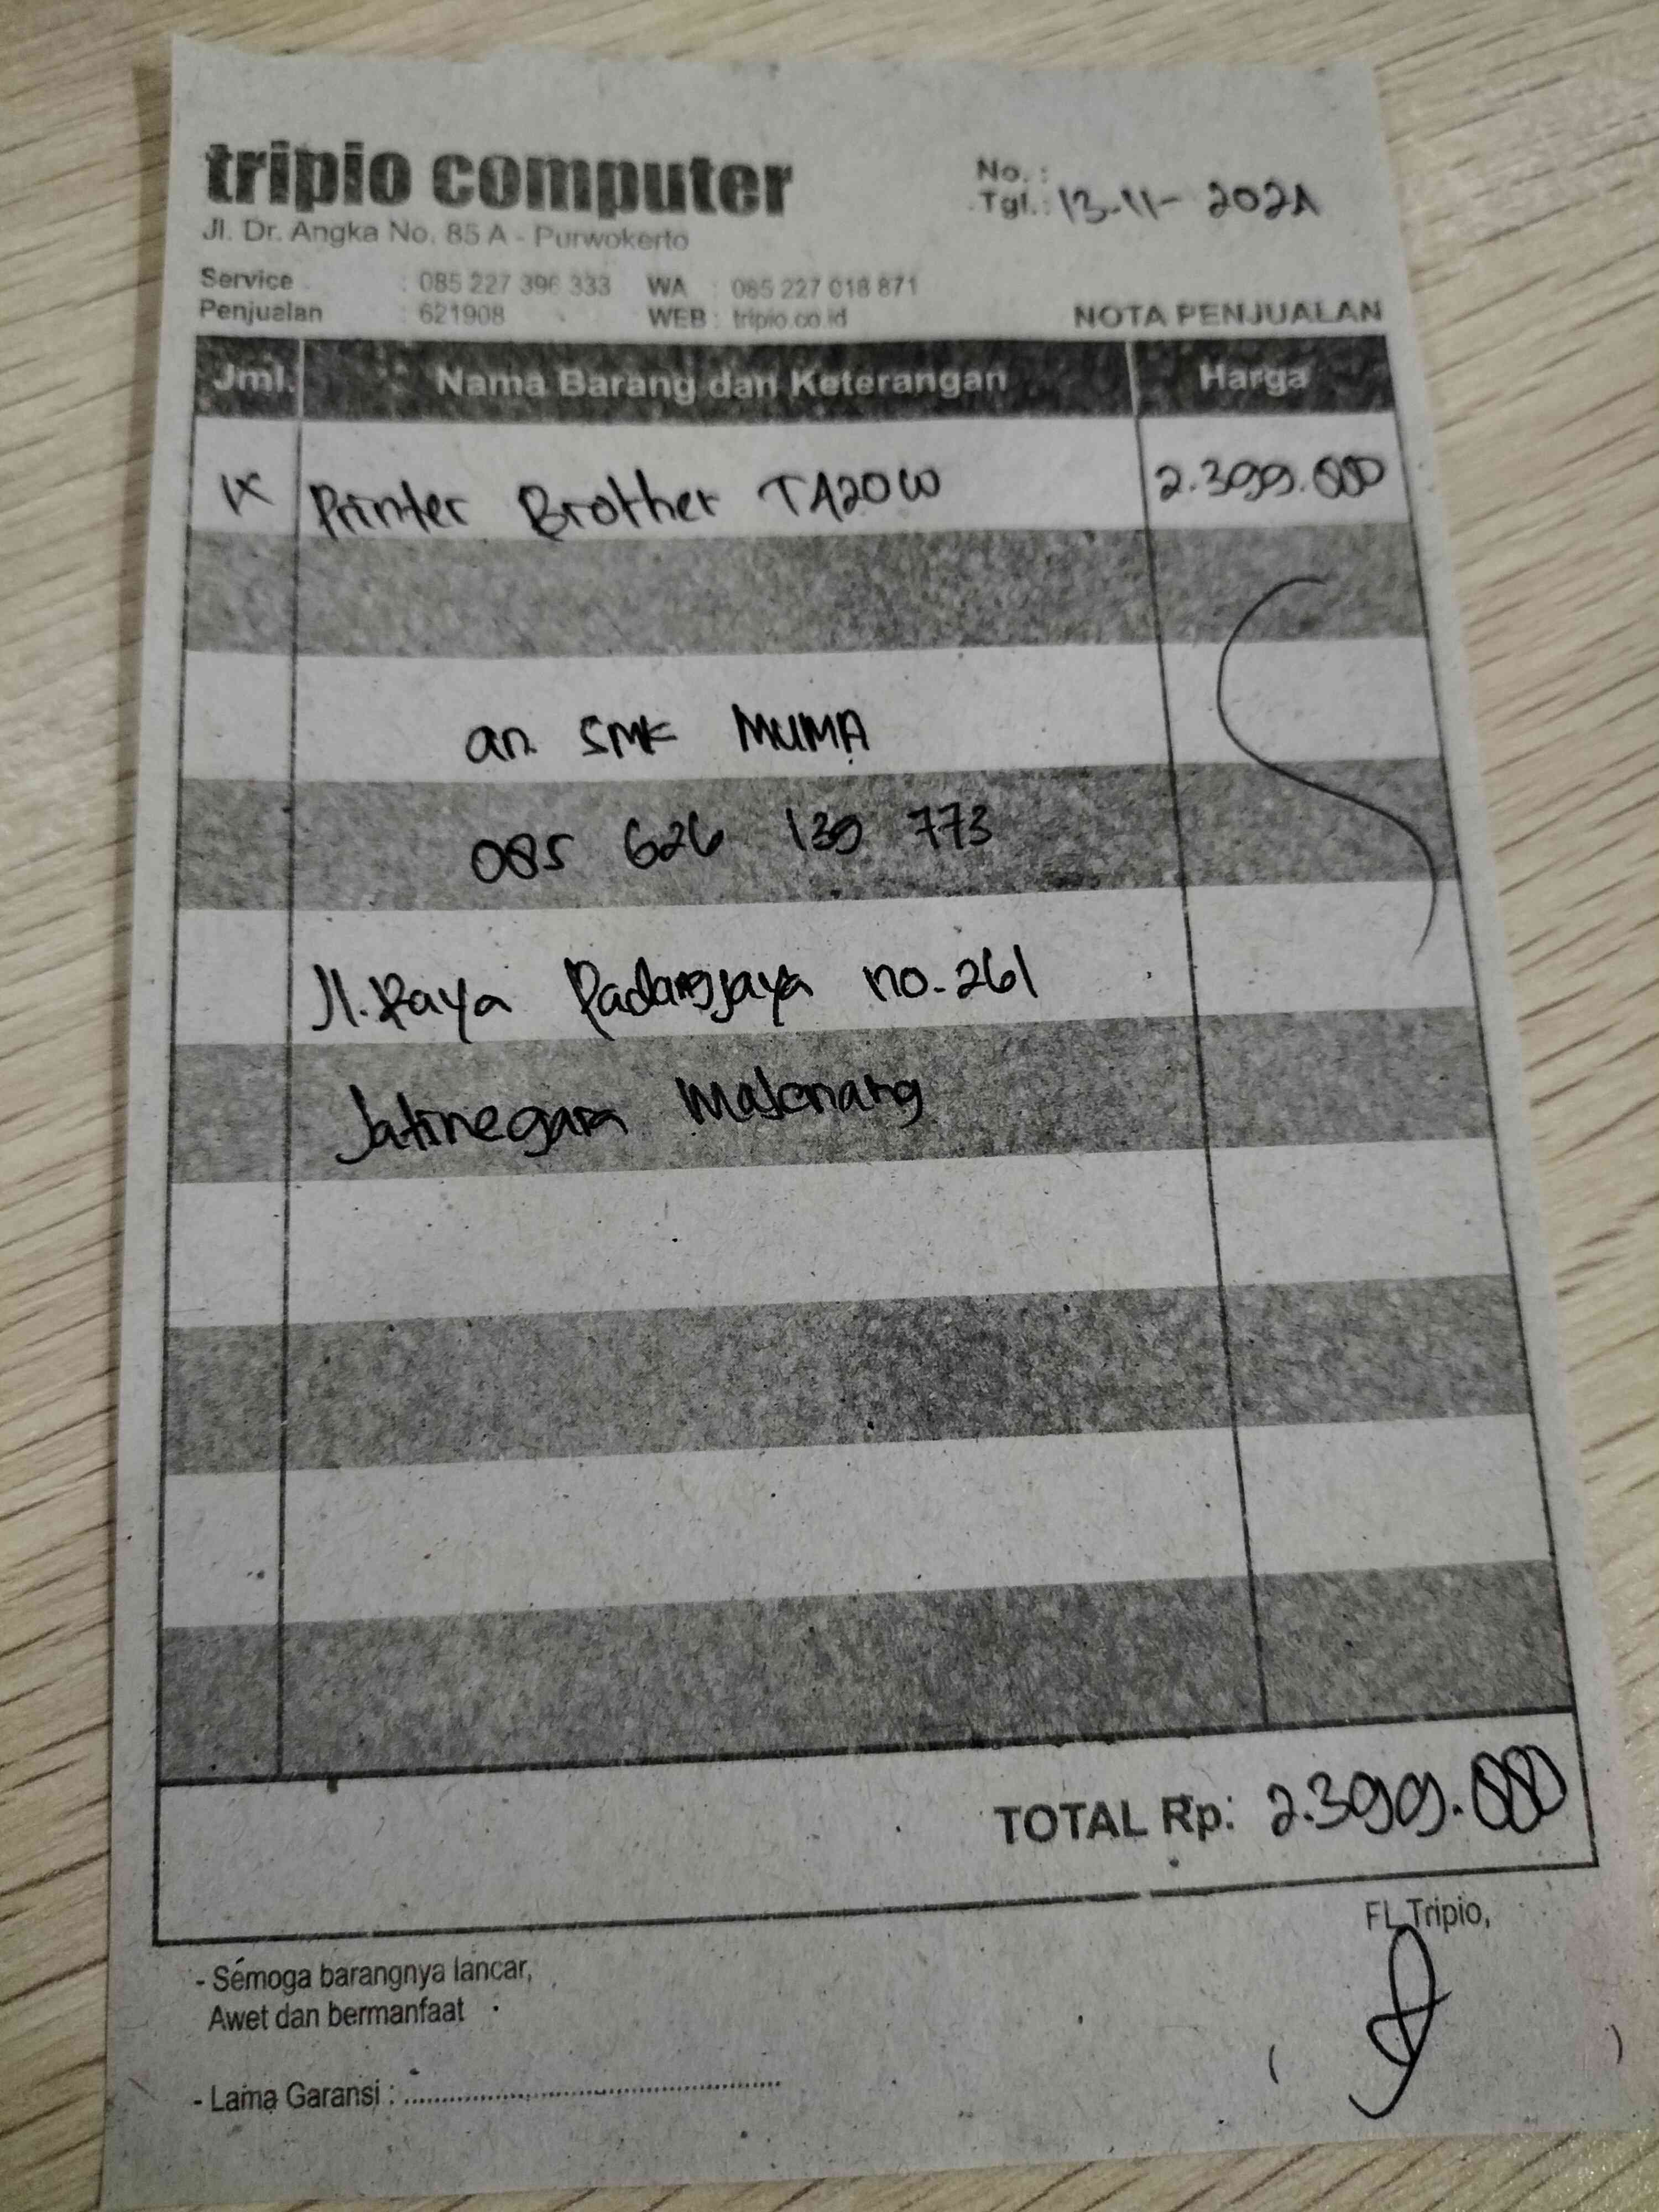 tripio computer
Jl. Dr. Angka No. 85 A - Purwokerto
No. :
Tgl. : 13-11-2021
Service : 085 227 396 333 WA : 085 227 018 871
Penjualan : 621908 WEB : tripio.co.id
NOTA PENJUALAN
Jml. Nama Barang dan Keterangan Harga
1x Printer Brother T420W 2.399.000
an. SMK MUMA
085 626 139 773
Jl. Raya Padangjaya no. 261
Jatinegara Majenang
TOTAL Rp: 2.399.000
FL Tripio,
- Semoga barangnya lancar,
Awet dan bermanfaat
- Lama Garansi : ..........
( )